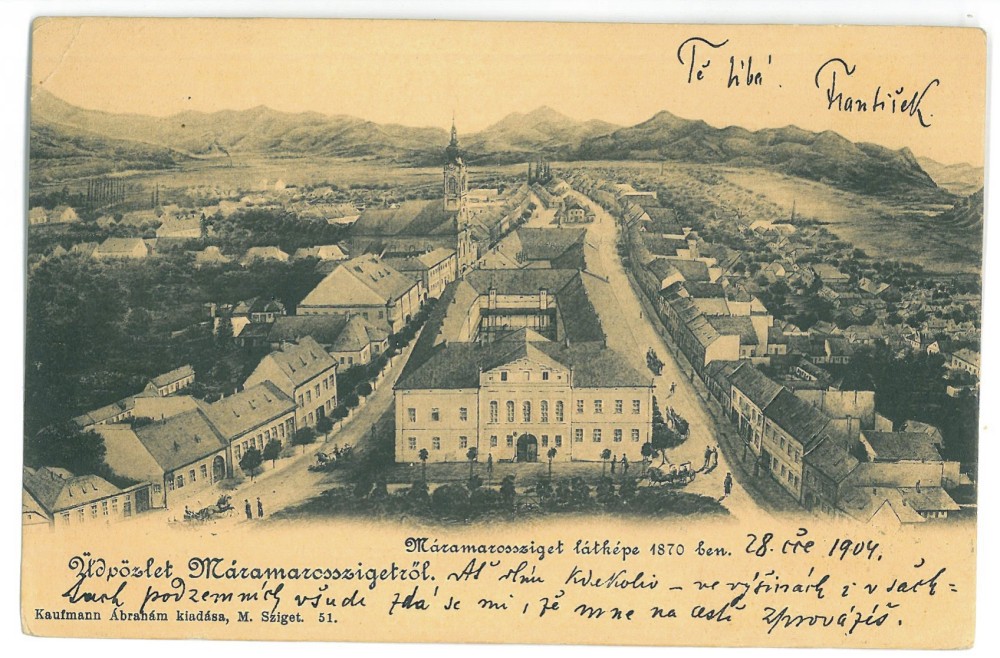 Tě líbá
František
Máramarossziget látképe 1870 ben. 28. čce 1904.
Üdvözlet Máramarosszigetről. Ať dlím kdekoliv – ve výšinách i v šach=
tách podzemních všude zdá se mi, že mne na cestě zprovázíš.
Kaufmann Ábrahám kiadása, M. Sziget. 51.